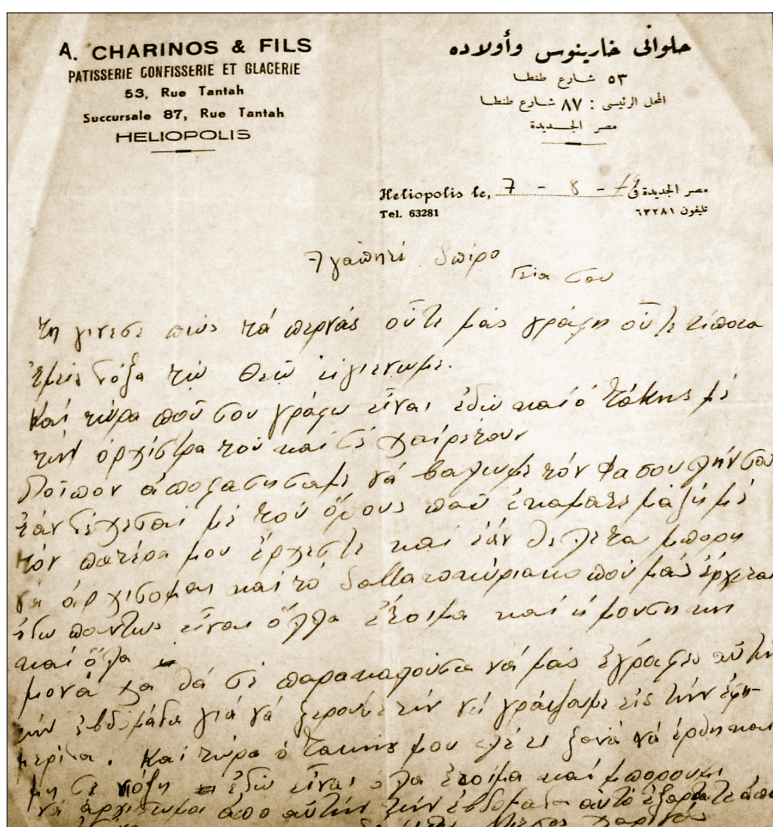 A. CHARINOS & FILS
PATISSERIE CONFISSERIE ET GLACERIE
53, Rue Tantah
Succursale 87, Rue Tantah
HELIOPOLIS
حلوانى خارينوس وأولاده
٥٣ شارع طنطا
المحل الرئيسى : ٨٧ شارع طنطا
مصر الجديدة
Heliopolis le, 7 - 8 - مصر الجديدة فى
Tel. 63281 تليفون ٦٣٢٨١
Αγαπητέ Σπίρο
Γεία σου
τη γινεσε πώς τά περνάς οὔτε μάς γράφη οὔτε τίποτα
ἐμείς δόξα τώ Θεώ
Καί τώρα πού σου γράφω είναι ἐδώ καί ὁ Τάκης μέ
τήν ὀρχίστρα του καί σέ χαιρέτουν
Λοιπον ἀποφασησαμε νά βαλωμε τόν Φασουλήν σου
ἐάν δέχεσαι μέ τού ὅρους πού ἐκαματε μαζή μέ
τόν πατέρα μου ἔρχεστε καί ἐάν θελετα μπορη
νά ἀρχισομαι καί τό Σαββατοκύριακο πού μάς ἔρχεται
ἐδω πάντως είναι ὅλλα ἑτοιμα καί ἡ μουσηκη
καί ὅλα
μονά χα θά σέ παρακαλούσα νά μάς ἐγραφες αὐτήν
τήν ἑβδομάδα γιά νά ξερουμε νά γράψουμε είς τήν ἐφη-
μερίδα. Καί τώρα ὁ Τακης μου λέει ξανά νά έρθη και
μη σέ νόζη ἐδώ είναι ολα ἑτοιμα καί μπορουμε
νά ἀρχισωμαι απο αὐτήν τήν ἑβδομαδα αὐτό ἐξαρτατε ἀπο